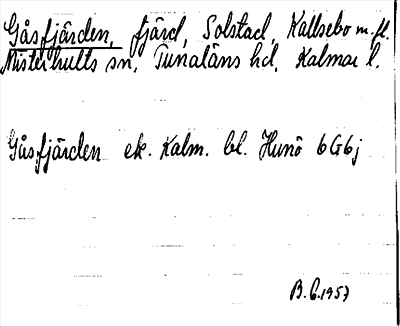 Gåsfjärden, fjärd, Solstad, Kallsebo m.fl.
Misterhults sn, Tunaläns hd, Kalmar l.
Gåsfjärden ek. Kalm. bl. Hunö 6G6j
B.G.1957